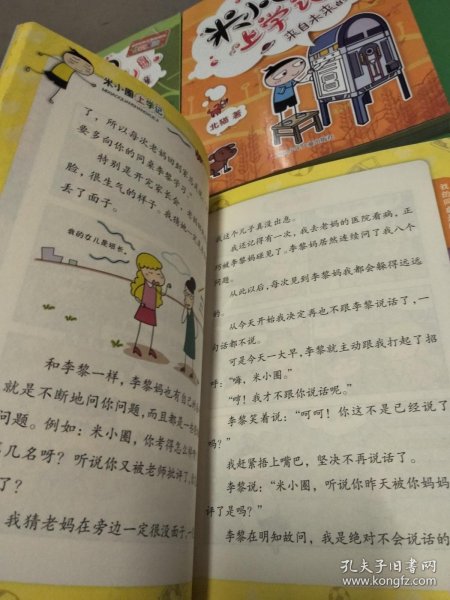 米小圈
上学记
来自未来的
北猫 著
米小圈上学记
了，所以每次老妈回到家
要多向你的同桌李黎学习。”
特别是开完家长会，
脸，很生气的样子。我猜她一定
丢了面子。
我的女儿是班长。
和李黎一样，李黎妈也有自己
就是不断地问你问题，而且都是一
问题。例如：米小圈，你考得怎么样
几名呀？听说你又被老师批评了，
了？
我猜老妈在旁边一定很没面子，
我这个儿子真没出息。
我还记得有一次，我去老妈的医院看病，正
巧被李黎妈碰见了。李黎妈居然连续问了我八个
问题。
从此以后，每次见到李黎妈我都会躲得远远
的。
从今天开始我决定再也不跟李黎说话了，一
句话都不说。
可是今天一大早，李黎就主动跟我打起了招
呼：“嗨，米小圈。”
“哼！我才不跟你说话呢。”
李黎笑着说：“呵呵！你这不是已经说了
吗？”
我赶紧捂上嘴巴，坚决不再说话了。
李黎说：“米小圈，听说你昨天被你妈妈
评了是吗？”
李黎在明知故问，我是绝对不会说话的
孔夫子旧书网
www.kongfz.com